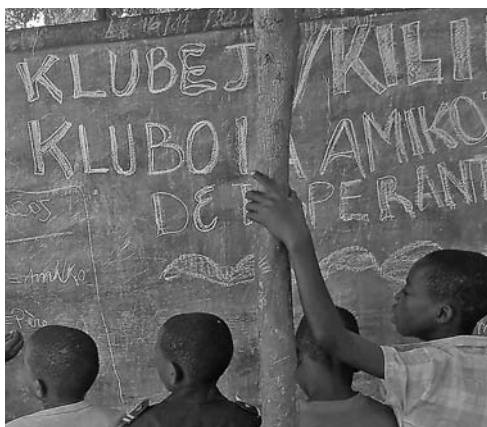 KLUBEJ /KILI
KLUBO LA AMIKO
DE PERANT
= Amiko
= Père